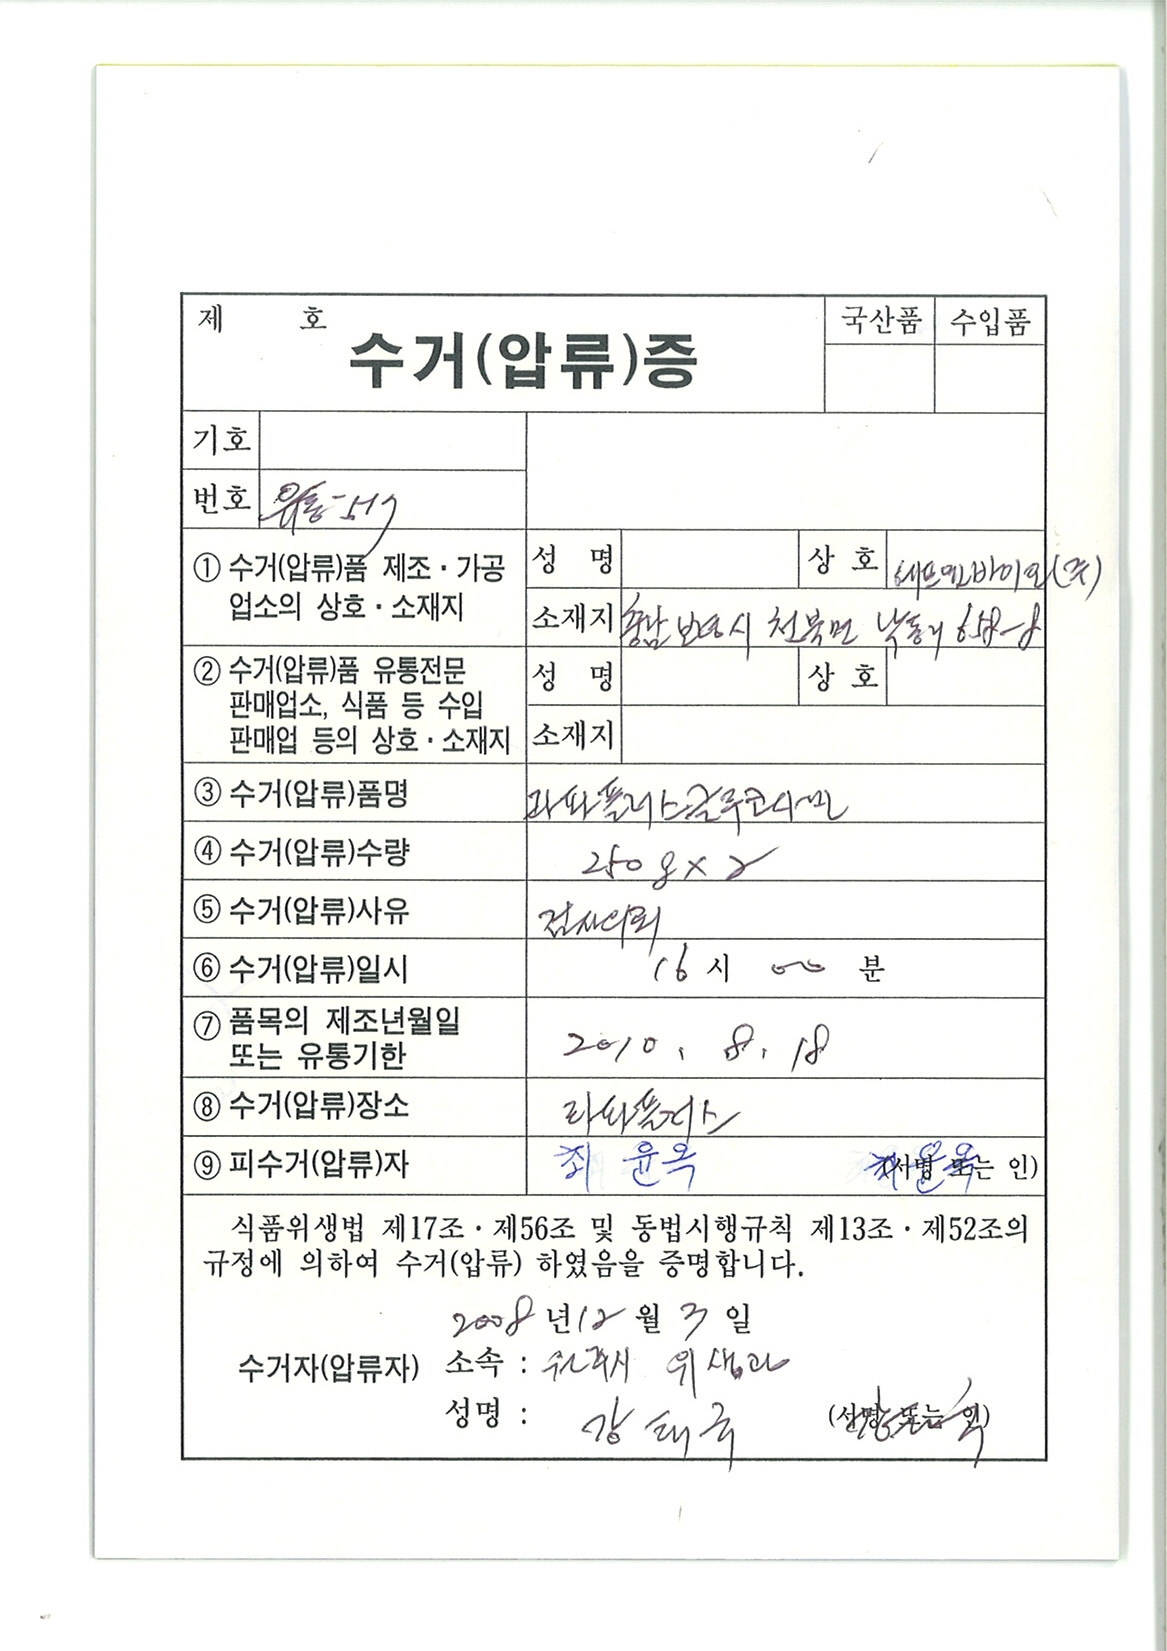 제 호
국산품 수입품
수거(압류)증
기호
번호 유통-517
① 수거(압류)품 제조·가공
업소의 상호·소재지
성 명 상 호 바이오(주)
소재지 충남 보령시 천북면 낙동리 658-8
② 수거(압류)품 유통전문
판매업소, 식품 등 수입
판매업 등의 상호·소재지
성 명 상 호
소재지
③ 수거(압류)품명 파파플러스글루코사민
④ 수거(압류)수량 250g×2
⑤ 수거(압류)사유 검사의뢰
⑥ 수거(압류)일시 16시 00분
⑦ 품목의 제조년월일
또는 유통기한
2010. 8. 18
⑧ 수거(압류)장소 파파플러스
⑨ 피수거(압류)자 최윤옥 (서명 또는 인)
식품위생법 제17조·제56조 및 동법시행규칙 제13조·제52조의
규정에 의하여 수거(압류) 하였음을 증명합니다.
2008년 12월 3일
수거자(압류자) 소속 : 위생과
성명 : 강태국 (서명 또는 인)